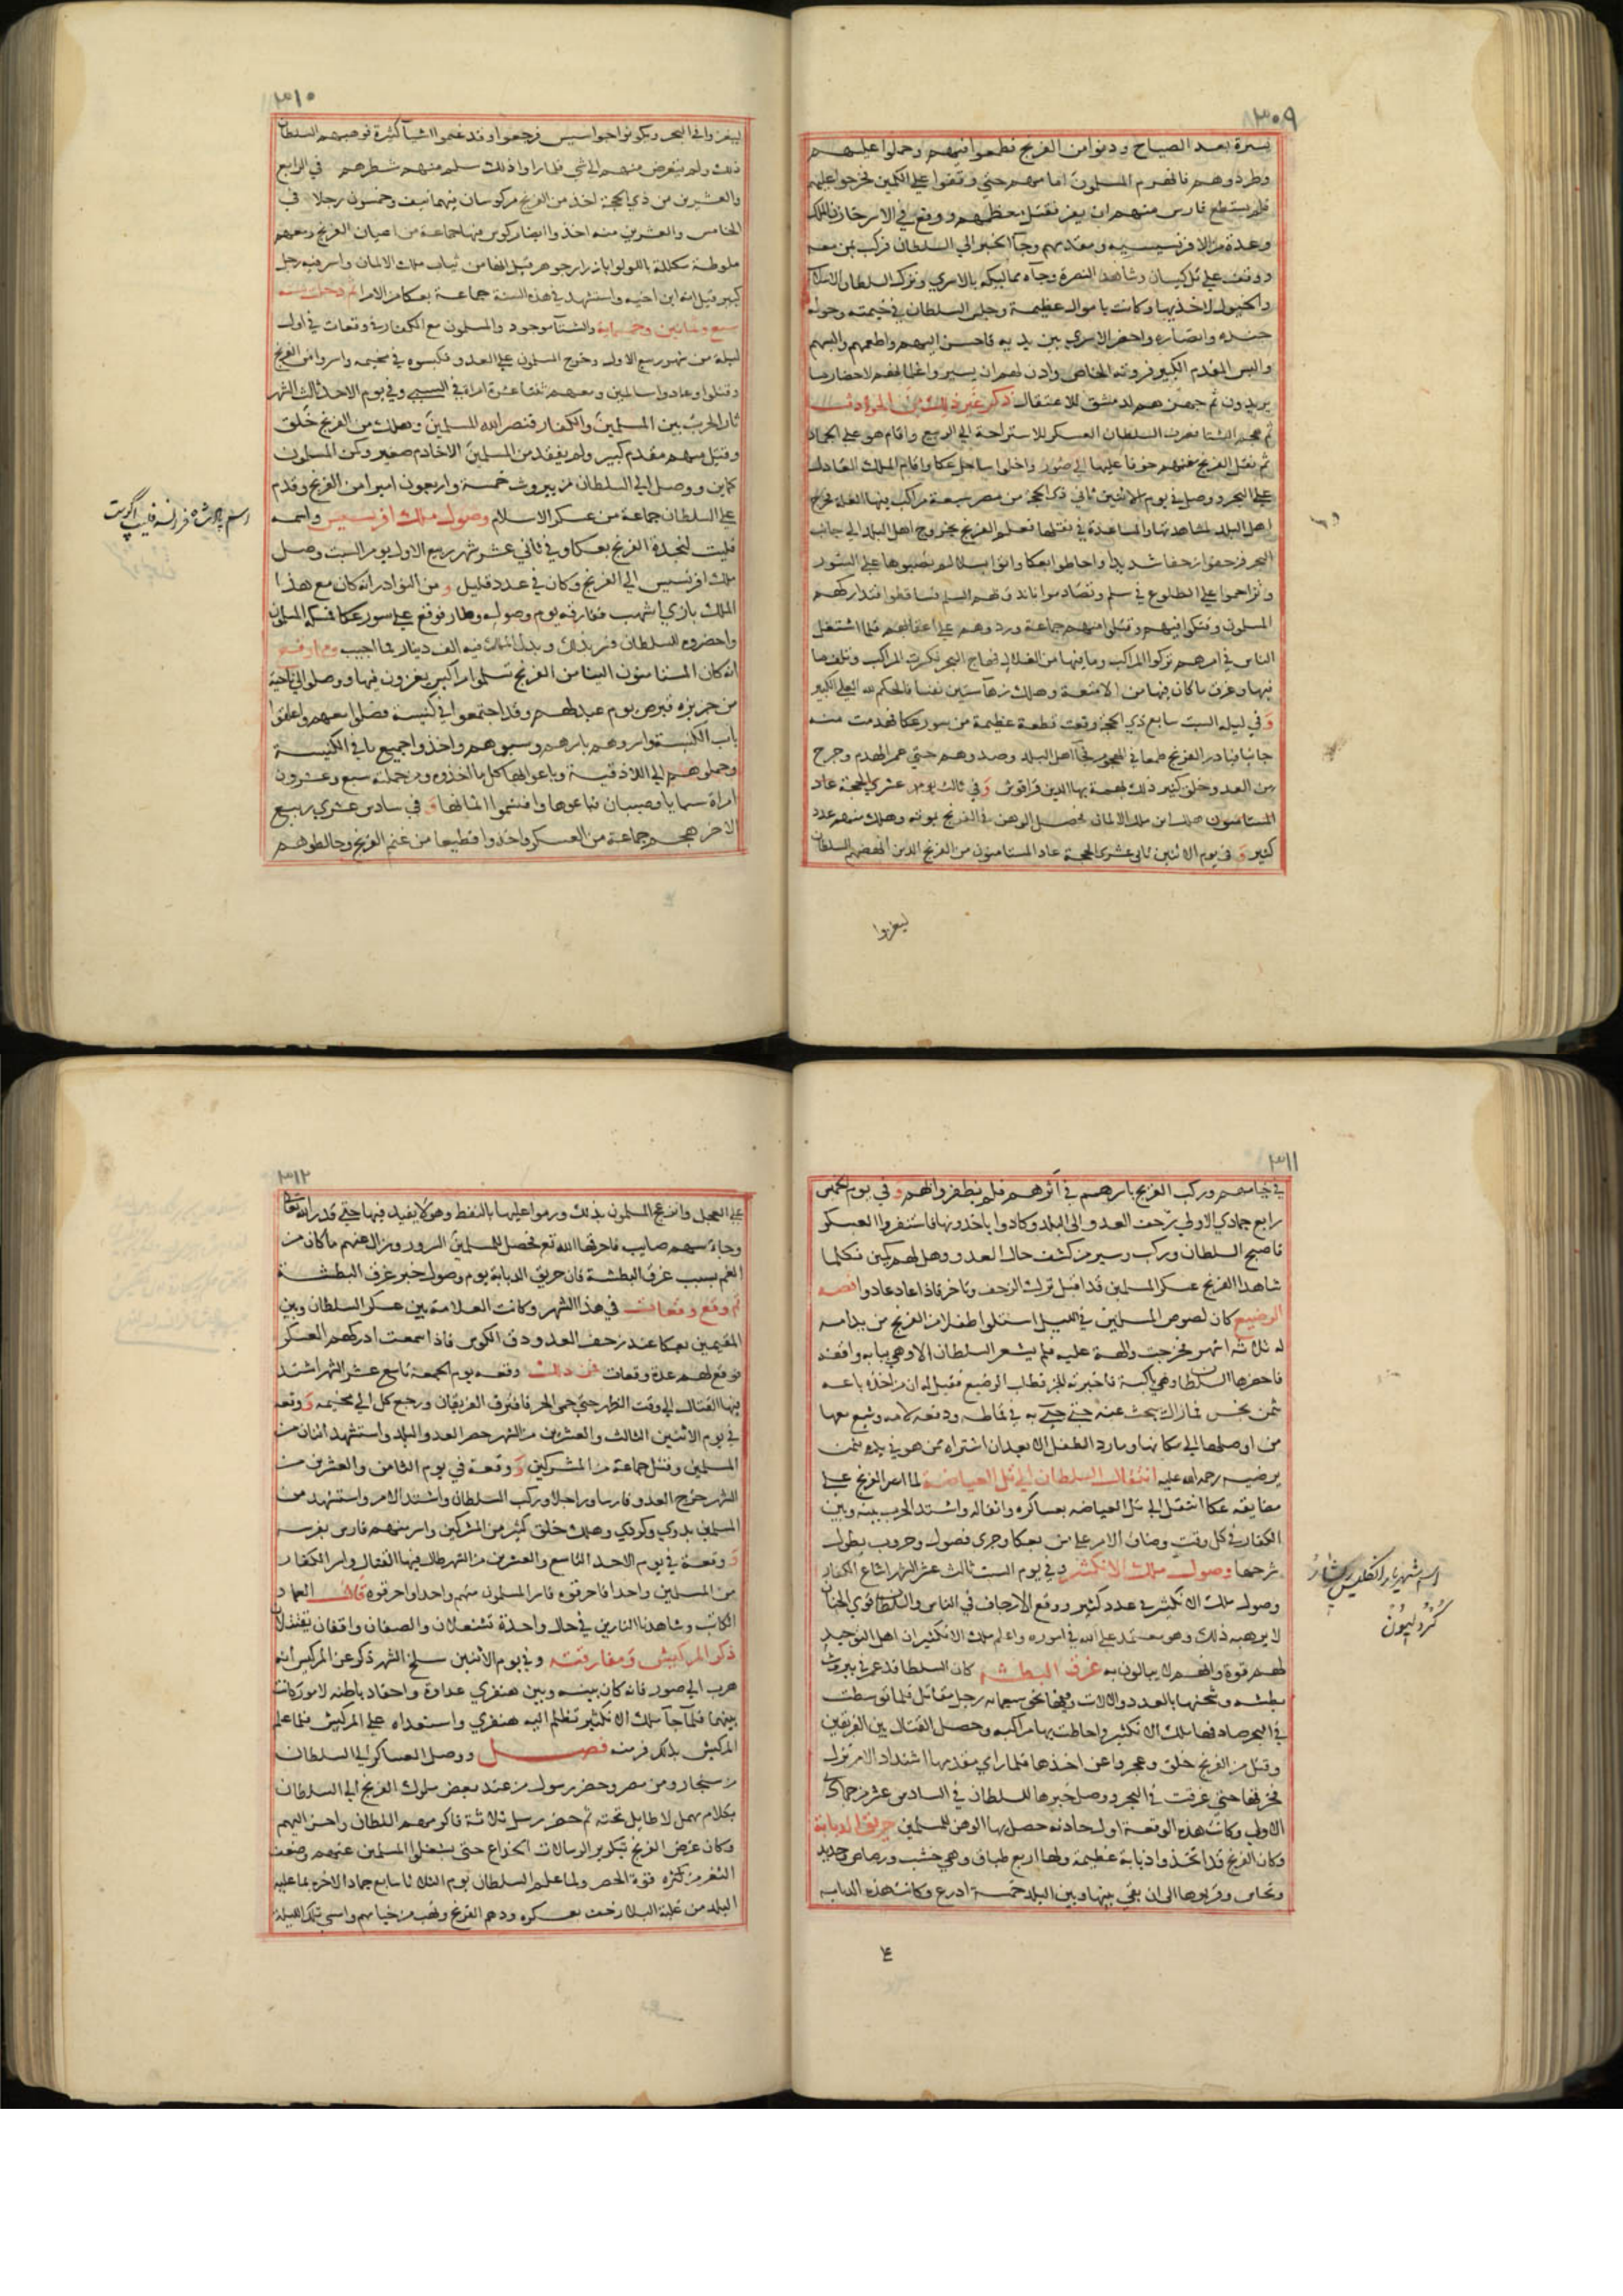 ٣٠٩
يسرة بعد الصباح ودنوا من الفرنج فطمعوا فيهم وحملوا عليهم
وطردوهم فانهزم المسلمون امامهم حتي وقفوا علي الكمين فخرجوا عليهم
فلم يستطع فارس منهم ان يفر فقتل معظمهم ووقع في الاسر خازن الملك
وعدة من الافرنسيسيه ومقدمهم وجآ الخبر الي السلطان فركب بمن معه
ووقف علي تل كيسان وشاهد النصرة وجآه مماليكه بالاسري وترك السلطان الاسلاب
والخيول لاخذيها وكانت باموال عظيمة وجلس السلطان في خيمته وحوله
جنده وانصاره واحضر الاسري بين يديه فاحسن اليهم واطعمهم والبسهم
والبس المقدم الكبير فروته الخاص واذن لهم ان يسيروا غلمانهم لاحضار ما
يريدون ثم جهزهم لدمشق للاعتقال ذكر غير ذلك من الحوادث
ثم هجم الشتا فصرف السلطان العسكر للاستراحة الي الربيع واقام هو علي الجهاد
ثم نقل الفرنج سفنهم خوفا عليها الي صور واخلوا ساحل عكا واقام الملك العادل
علي البحر ووصل في يوم الاثنين ثاني ذي الحجة من مصر سبعة مراكب فيها الغلة فخرج
اهل البلد لمشاهدتها والمساعدة في نقلها فعلم الفرنج بخروج اهل البلد الي جانب
البحر فزحفوا زحفا شديدا واحاطوا بعكا واتوا بسلالم نصبوها علي السور
وتزاحموا علي الطلوع في سلم وتصادموا فاندق بهم السلم فتساقطوا فتداركهم
المسلمون وفتكوا فيهم وقتلوا منهم جماعة وردوهم علي اعقابهم فلما اشتغل
الناس في امرهم تركوا المراكب وما فيها من الغلال فهاج البحر فكسرت المراكب وتلف ما
فيها وغرق ما كان فيها من الامتعة وهلك زهآ ستين نفسا فالحكم لله العلي الكبير
وفي ليلة السبت سابع ذي الحجة وقعت قطعة عظيمة من سور عكا فهدمت منه
جانبا فبادر الفرنج طمعا في الهجوم فجآ اهل البلد وصدوهم حتي عمر الهدم وجرح
من العدو خلق كثير ذلك بهمة بها الدين قراقوش وفي ثالث يوم عشري الحجة عاد
المستامنون هلك ابن ملك الالمان فحصل الوهن في الفرنج بموته وهلك منهم عدد
كثير وفي يوم الاثنين ثاني عشري الحجة عاد المستامنون من الفرنج الذين انهضهم السلطان
ليغزوا
٣١٠
ليغزوا في البحر ويكونوا جواسيس فرجعوا وقد غنموا اشيآ كثيرة فوهبهم السلطان
ذلك ولم يتعرض منهم الي شي فلما راوا ذلك سلم منهم شطرهم في الرابع
والعشرين من ذي الحجة اخذ من الفرنج مركوسان فيهما نيف وخمسون رجلا في
الخامس والعشرين منه اخذوا ايضا ركوس فيها جماعة من اعيان الفرنج ومعهم
ملوطة مكللة باللولو ابازرار جوهر قيل انها من ثياب ملك الالمان واسر فيه رجل
كبير قيل انه ابن اخيه واستشهد في هذه السنة جماعة بعكا من الامرا ثم دخلت سنة
سبع وثمانين وخمسماية والشتآ موجود والمسلمون مع الكفار في وقعات في اول
ليلة من شهر ربيع الاول وخرج المسلمون علي العدو فكبسوه في مخيمه واسروا من الفرنج
وقتلوا وعادوا سالمين ومعهم اثنتا عشرة امراة في السبي وفي يوم الاحد ثالث الشهر
ثار الحرب بين المسلمين والكفار فنصر الله المسلمين وهلك من الفرنج خلق
وقتل منهم مقدم كبير ولم يفقد من المسلمين الا خادم صغير وكمن المسلمون
كماين ووصل الي السلطان من بيروت خمسة واربعون اسيرا من الفرنج وقدم
علي السلطان جماعة من عسكر الاسلام وصول ملك افرنسيس واسمه
فليت لنجدة الفرنج بعكا وفي ثاني عشر شهر ربيع الاول يوم السبت وصل
ملك افرنسيس الي الفرنج وكان في عدد قليل ومن النوادر انه كان مع هذا
الملك بازي اشهب ففارقه يوم وصوله وطار فوقع علي سور عكا فمسكه المسلمون
واحضروه للسلطان فسر بذلك وبذل الملك فيه الف دينار فما اجيب وما وقع
انه كان المستامنون ايضا من الفرنج تسلموا مراكب يغزون فيها ووصلوا الي ناحية
من جزيرة قبرص يوم عيد لهم وقد اجتمعوا في كنيسة فصلوا معهم واغلقوا
باب الكنيسة واسروهم باسرهم وسبوهم واخذوا جميع ما في الكنيسة
وحملوهم الي اللاذقية وباعوا بها كل ما اخذوه ومن جملته سبع وعشرون
امراة سبايا وصبيان فباعوها واقتسموا اثمانها وفي سادس عشري ربيع
الاخر هجم جماعة من العسكر واخذوا قطيعا من غنم الفرنج وخالطوهم
اسم پادشاه فرانسه فليپ اگوست
٣١١
في خيامهم وركب الفرنج باسرهم في اثرهم فلم يظفروا بهم وفي يوم الخميس
رابع جمادي الاولي زحف العدو الي البلد وكادوا ياخذونها فاستنفروا العسكر
فاصبح السلطان وركب وسير من كشف حال العدو وهل لهم كمين فكلما
شاهد الفرنج عسكر المسلمين قد اقبل ترك الزحف وتاخر فاذا عاد عادوا قصة
الرضيع كان لصوص المسلمين في الليل استلوا طفلا من الفرنج من يد امه
له ثلاثة اشهر فخرجت والهة عليه فلم يشعر السلطان الا وهي ببابه واقفة
فاحضرها السلطان وهي باكية فاخبرته بخبرها فطلب الرضيع فقيل له ان من اخذه باعه
بثمن بخس فما زال يبحث عنه حتي جي به في قماطه ودفعه لامه وشيع معها
من اوصلها الي مكانها وما رد الطفل الا بعد ان اشتراه ممن هو في يده بثمن
يرضيه رحمه الله عليه انتقال السلطان الي تل العياضية لما اصر الفرنج علي
مضايقة عكا انتقل الي تل العياضه بعساكره واثقاله واشتد الحرب بينه وبين
الكفار في كل وقت وضاق الامر علي من بعكا وجري فصول وحروب يطول
شرحها وصول ملك الانكثير وفي يوم السبت ثالث عشر الشهر اشاع الكفار
وصول ملك الانكثير في عدد كثير ووقع الارجاف في الناس والسلطان قوي الجنان
لا يرهبه ذلك وهو معتمد علي الله في اموره واعلم ملك الانكثير ان اهل التوحيد
لهم قوة وانهم لا يبالون به غرق البطشه كان السلطان قد عمر في بيروت
بطشه وشحنها بالعدد والالات وفيها نحو سبعمايه رجل مقاتل فلما توسطت
في البحر صادفها ملك الانكثير واحاطت بها مراكبه وحصل القتال بين الفريقين
وقتل من الفرنج خلق وعجزوا عن اخذها فلما راي مقدمها اشتداد الامر نزل
فخرقها حتي غرقت في البحر ووصل خبرها للسلطان في السادس عشر من جمادي
الاولي وكانت هذه الوقعة اول حادثه حصل بها الوهن للمسلمين حريق الدبابة
وكان الفرنج قد اتخذوا دبابة عظيمة ولها اربع طباق وهي خشب ورصاص وحديد
ونحاس وقربوها الي ان بقي بينها وبين البلد خمسة اذرع وكانت هذه الدبابه
اسم شهريار انگليس ريشار
كردليون
ع
٣١٢
علي العجل وانزعج المسلمون بذلك ورموا عليها بالنفط وهو لا يفيد فيها حتي قدر الله تعالي
وجاة سهم صايب فاحرقها الله تع فحصل للمسلمين السرور وزال عنهم ما كان من
الغم بسبب غرق البطشة فان حريق الدبابة يوم وصول خبر غرق البطشة
ثم وقع وقعات في هذا الشهر وكانت العلامة بين عسكر السلطان وبين
المقيمين بعكا عند زحف العدو دق الكوس فاذا سمعت ادركهم العسكر
فوقع لهم عدة وقعات فمن ذلك وقعه يوم الجمعة تاسع عشر الشهر اشتد
فيها القتال الي وقت الظهر حتي حمي الحر فافترق الفريقان ورجع كل الي مخيمه ووقعه
في يوم الاثنين الثالث والعشرين من الشهر حصر العدو البلد واستشهد اثنان من
المسلمين وقتل جماعة من المشركين ووقعة في يوم الثامن والعشرين من
الشهر خرج العدو فارسا وراجلا وركب السلطان واشتد الامر واستشهد من
المسلمين بدوي وكردي وهلك خلق كثير من المشركين واسر منهم فارس بفرسه
ووقعة في يوم الاحد التاسع والعشرين من الشهر طال فيها القتال واسر الكفار
من المسلمين واحدا فاحرقوه فاسر المسلمون منهم واحدا واحرقوه قال العماد
الكاتب وشاهدنا النارين في حال واحدة تشتعلان والصفان واقفان يقتتلان
ذكر المركيش ومفارقته وفي يوم الاثنين سلخ الشهر ذكر عن المركيس انه
هرب الي صور فانه كان بينه وبين هنفري عداوة واحقاد باطنه لامور كانت
بينهما فلما جآ ملك الانكثير تظلم اليه هنفري واستعداه علي المركيش فلما علم
المركيش بذلك فر منه فصل ووصل العساكر الي السلطان
من سنجار ومن مصر وحضر رسول من عند بعض ملوك الفرنج الي السلطان
بكلام مهمل لا طايل تحته ثم حضر رسل ثلاثة فاكرمهم السلطان واحسن اليهم
وكان غرض الفرنج تكرير الرسالات الخداع حتي يشتغل المسلمين عنهم وضعف
الثغر من كثرة قوة الحصر ولما علم السلطان يوم الثلاثا سابع جمادا الاخرة بما عليه
البلد من غلبة البلا زحف بعسكره ودهم الفرنج ونهب من خيامهم وامسي تلك الليلة